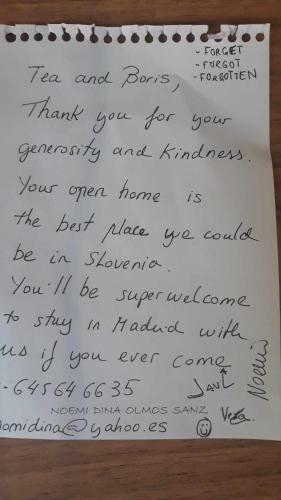 - FORGET
- FORGOT
- FORGOTTEN
Tea and Boris,
Thank you for your
generosity and kindness.
Your open home is
the best place we could
be in Slovenia.
You'll be superwelcome
to stay in Madrid with
us if you ever come
- 645646635
NOEMI DINA OLMOS SANZ
omidina@yahoo.es
Noemi